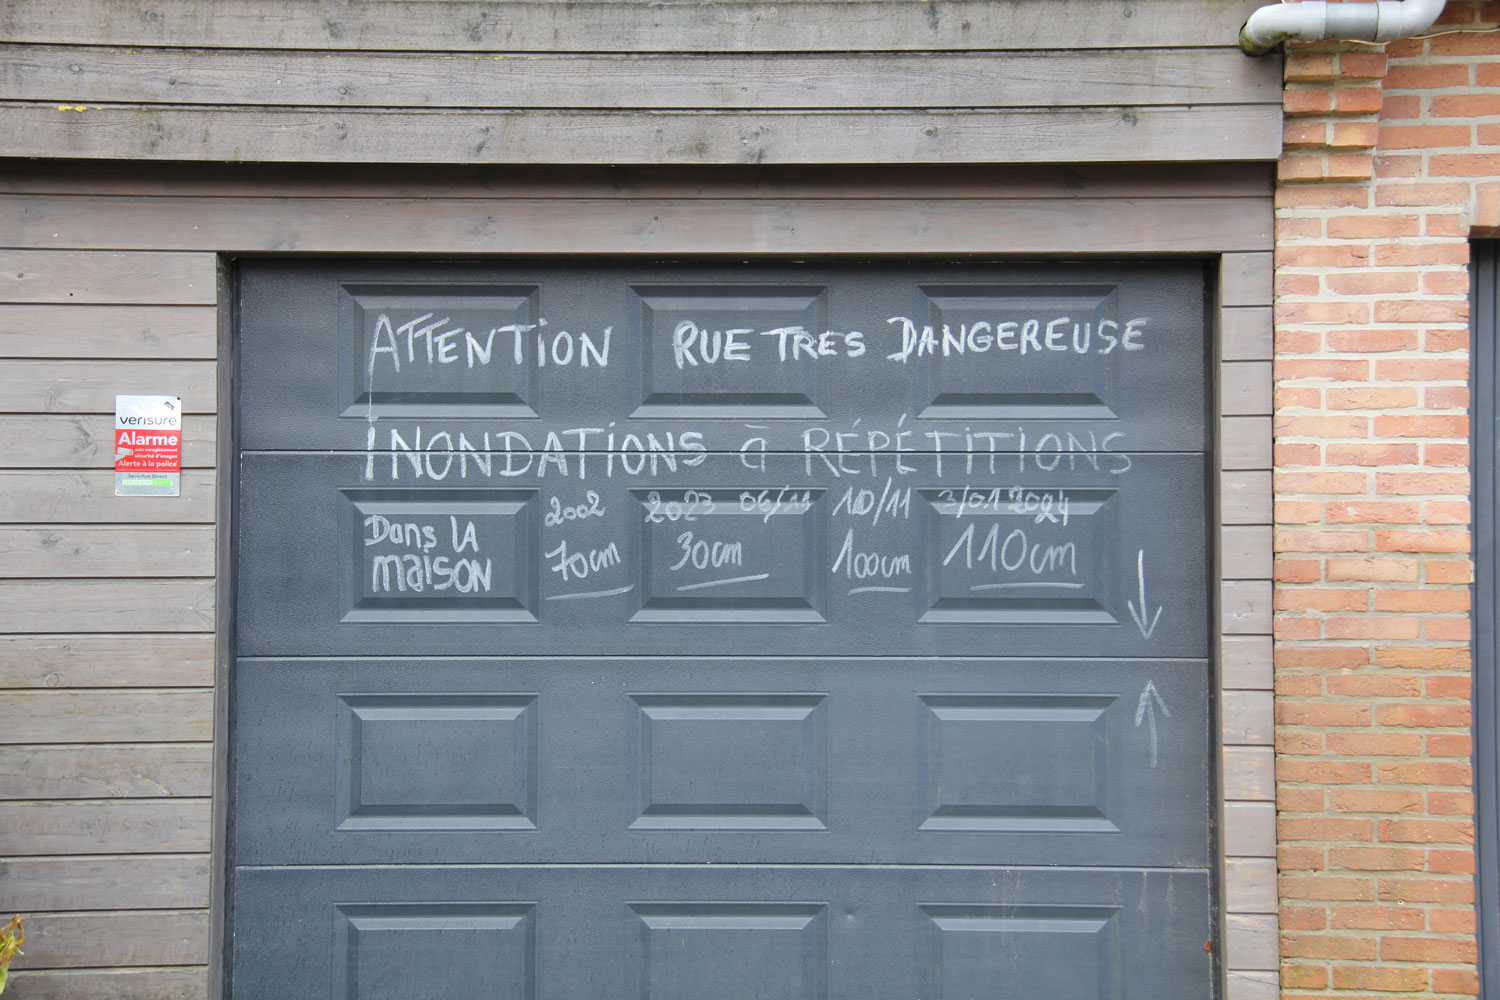 ATTENTION RUE TRES DANGEREUSE
INONDATIONS à RÉPÉTITIONS
2002 2023 06/11 10/11 3/01 2024
Dans LA
maiSON
70cm 30cm 100cm 110cm
verisure
Alarme
avec enregistrement
sécurisé d'images
Alerte à la police
Securitas Direct